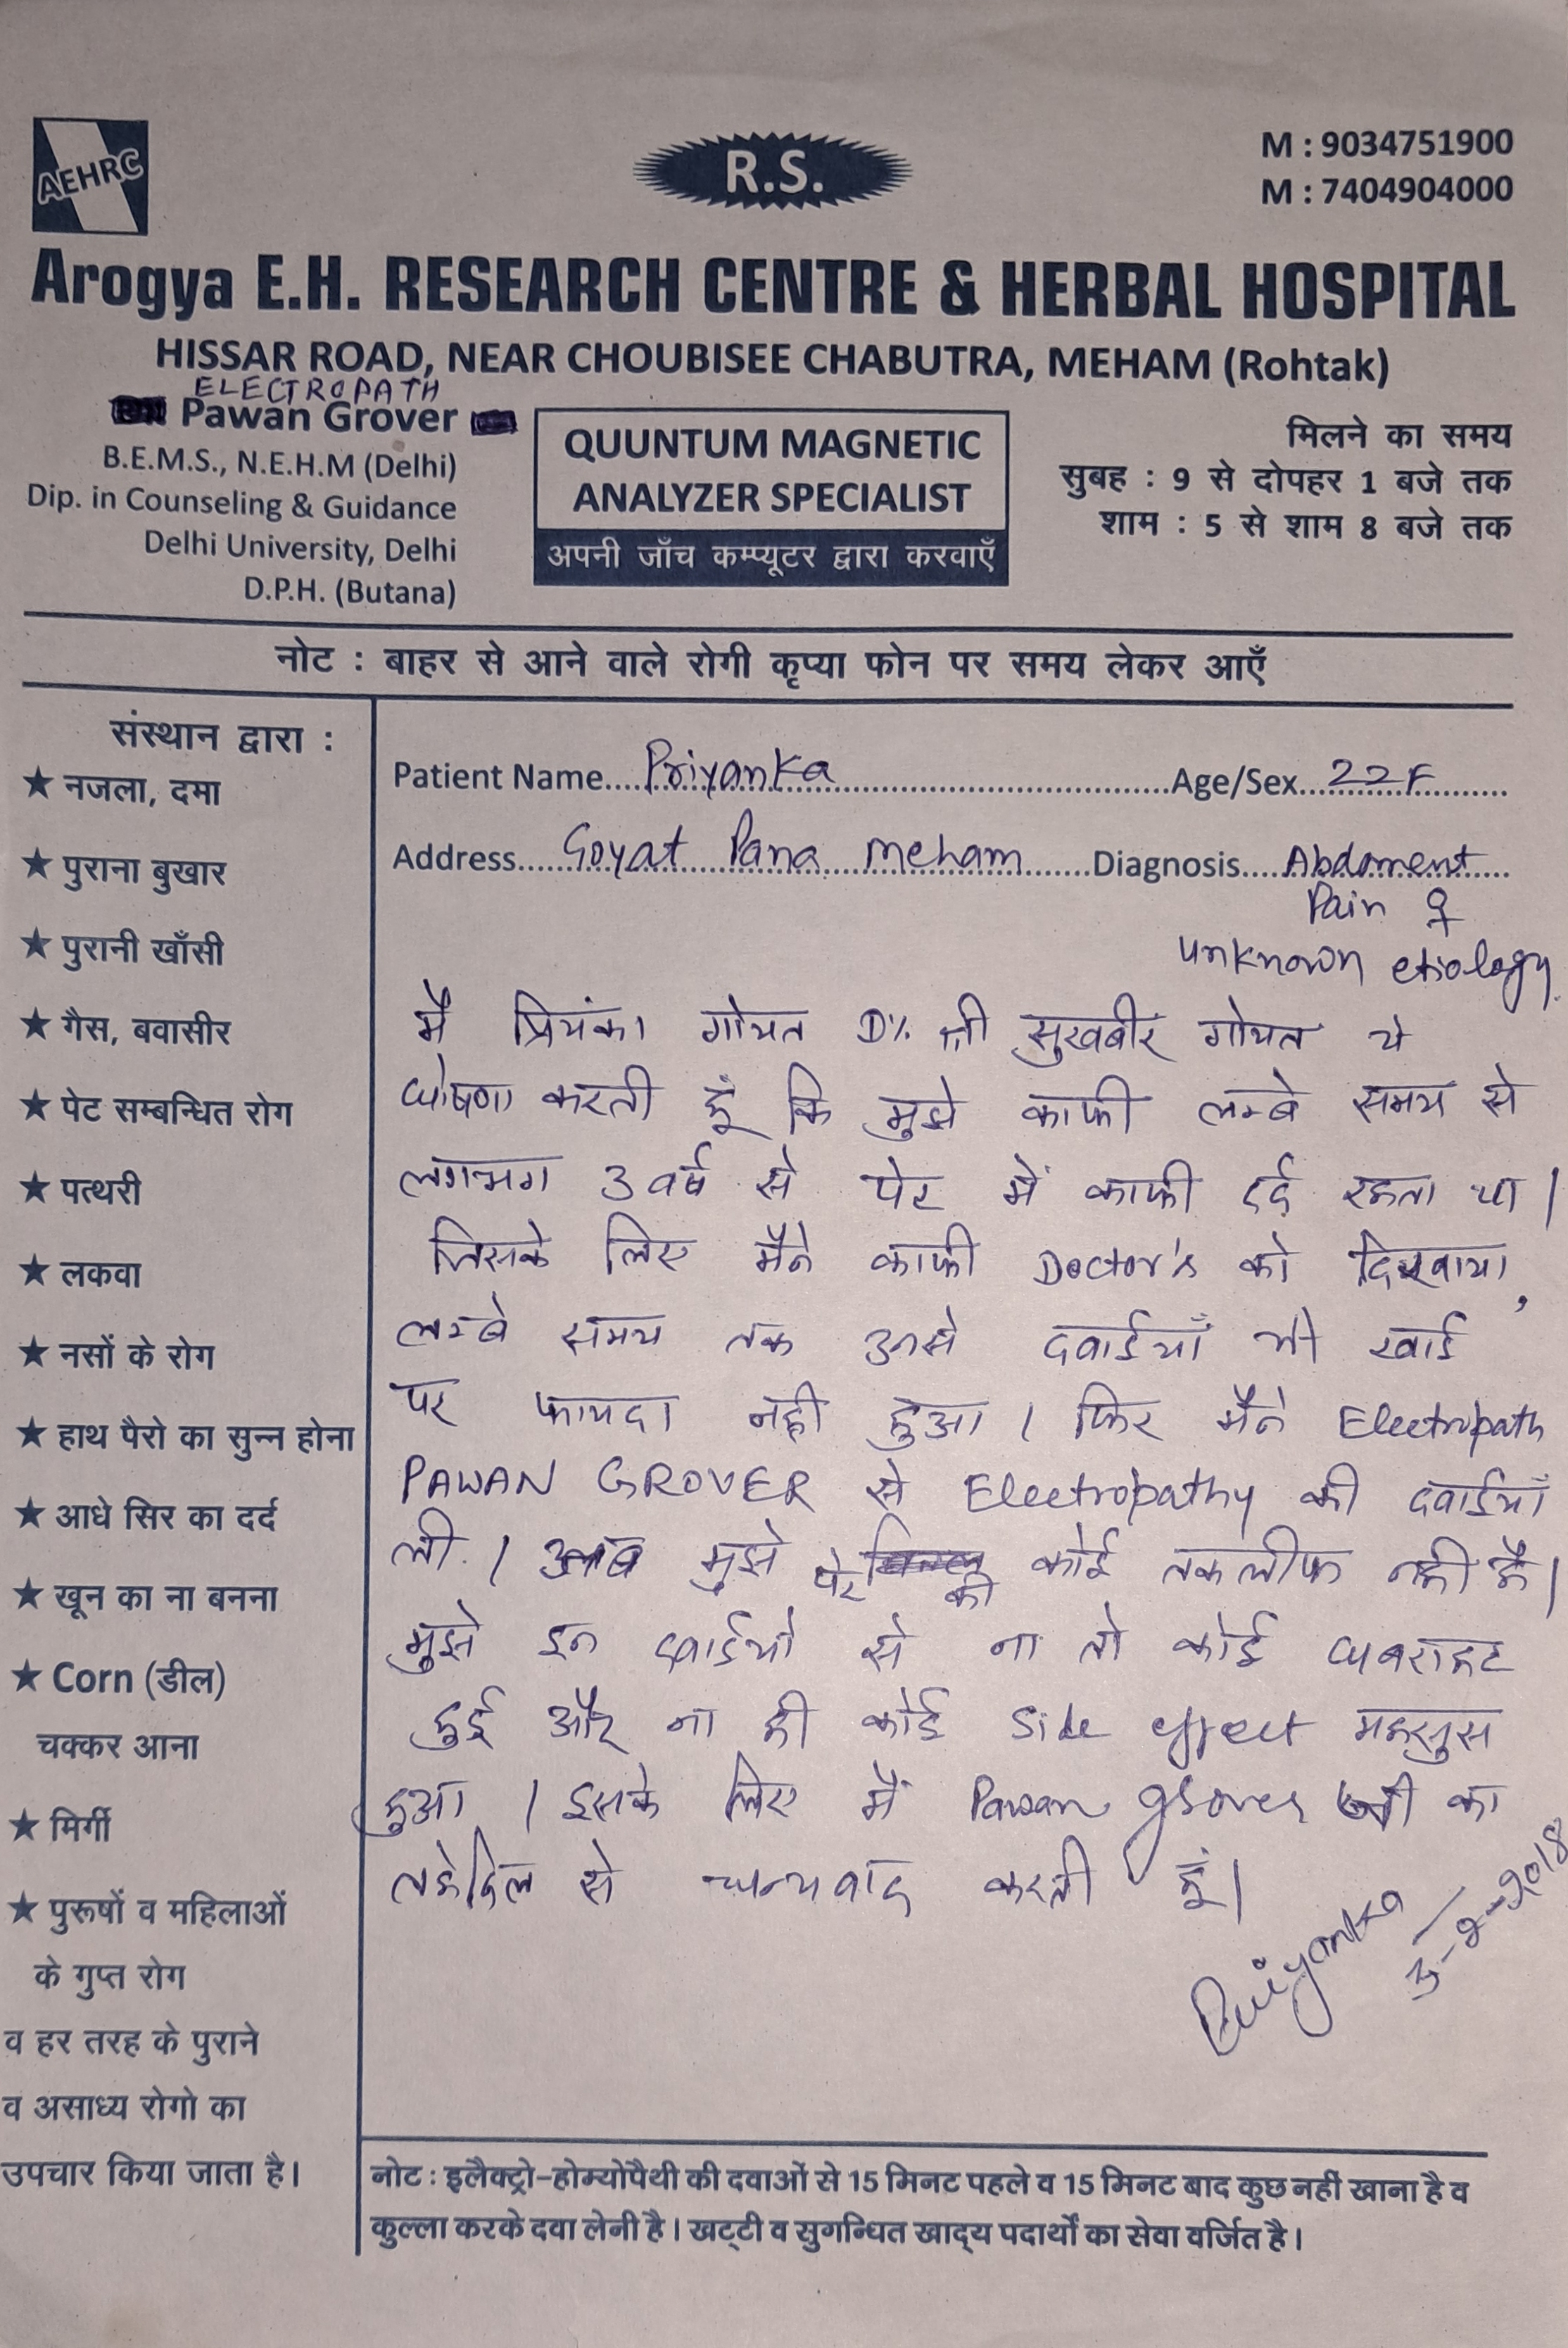 AEHRC
R.S.
M : 9034751900
M : 7404904000
Arogya E.H. RESEARCH CENTRE & HERBAL HOSPITAL
HISSAR ROAD, NEAR CHOUBISEE CHABUTRA, MEHAM (Rohtak)
ELECTROPATH
Pawan Grover
B.E.M.S., N.E.H.M (Delhi)
Dip. in Counseling & Guidance
Delhi University, Delhi
D.P.H. (Butana)
QUUNTUM MAGNETIC
ANALYZER SPECIALIST
अपनी जाँच कम्प्यूटर द्वारा करवाएँ
मिलने का समय
सुबह : 9 से दोपहर 1 बजे तक
शाम : 5 से शाम 8 बजे तक
नोट : बाहर से आने वाले रोगी कृप्या फोन पर समय लेकर आएँ
संस्थान द्वारा :
★ नजला, दमा
★ पुराना बुखार
★ पुरानी खाँसी
★ गैस, बवासीर
★ पेट सम्बन्धित रोग
★ पत्थरी
★ लकवा
★ नसों के रोग
★ हाथ पैरो का सुन्न होना
★ आधे सिर का दर्द
★ खून का ना बनना
★ Corn (डील)
चक्कर आना
★ मिर्गी
★ पुरूषों व महिलाओं
के गुप्त रोग
व हर तरह के पुराने
व असाध्य रोगो का
उपचार किया जाता है।
Patient Name....Priyanka....Age/Sex...22F...
Address....Goyat Pana Meham....Diagnosis....Abdoment
Pain
unknown etiology.
मै प्रियंका गोयत D/o श्री सुखबीर गोयत ये
घोषणा करती हूँ कि मुझे काफी लम्बे समय से
लगभग 3 वर्ष से पेट में काफी दर्द रहता था।
जिसके लिए मैने काफी Doctor's को दिखाया,
लम्बे समय तक उनसे दवाईयाँ भी खाई
पर फायदा नही हुआ। फिर मैने Electropath
PAWAN GROVER से Electropathy की दवाईयाँ
ली। अब मुझे पेट की कोई तकलीफ नही है।
मुझे इन दवाईयो से ना तो कोई घबराहट
हुई और ना ही कोई side effect महसुस
हुआ। इसके लिए मैं Pawan grover जी का
तहेदिल से धन्यवाद करती हूं।
Priyanka
3-2-2018
नोट : इलैक्ट्रो-होम्योपैथी की दवाओं से 15 मिनट पहले व 15 मिनट बाद कुछ नहीं खाना है व
कुल्ला करके दवा लेनी है। खट्टी व सुगन्धित खाद्य पदार्थों का सेवा वर्जित है।